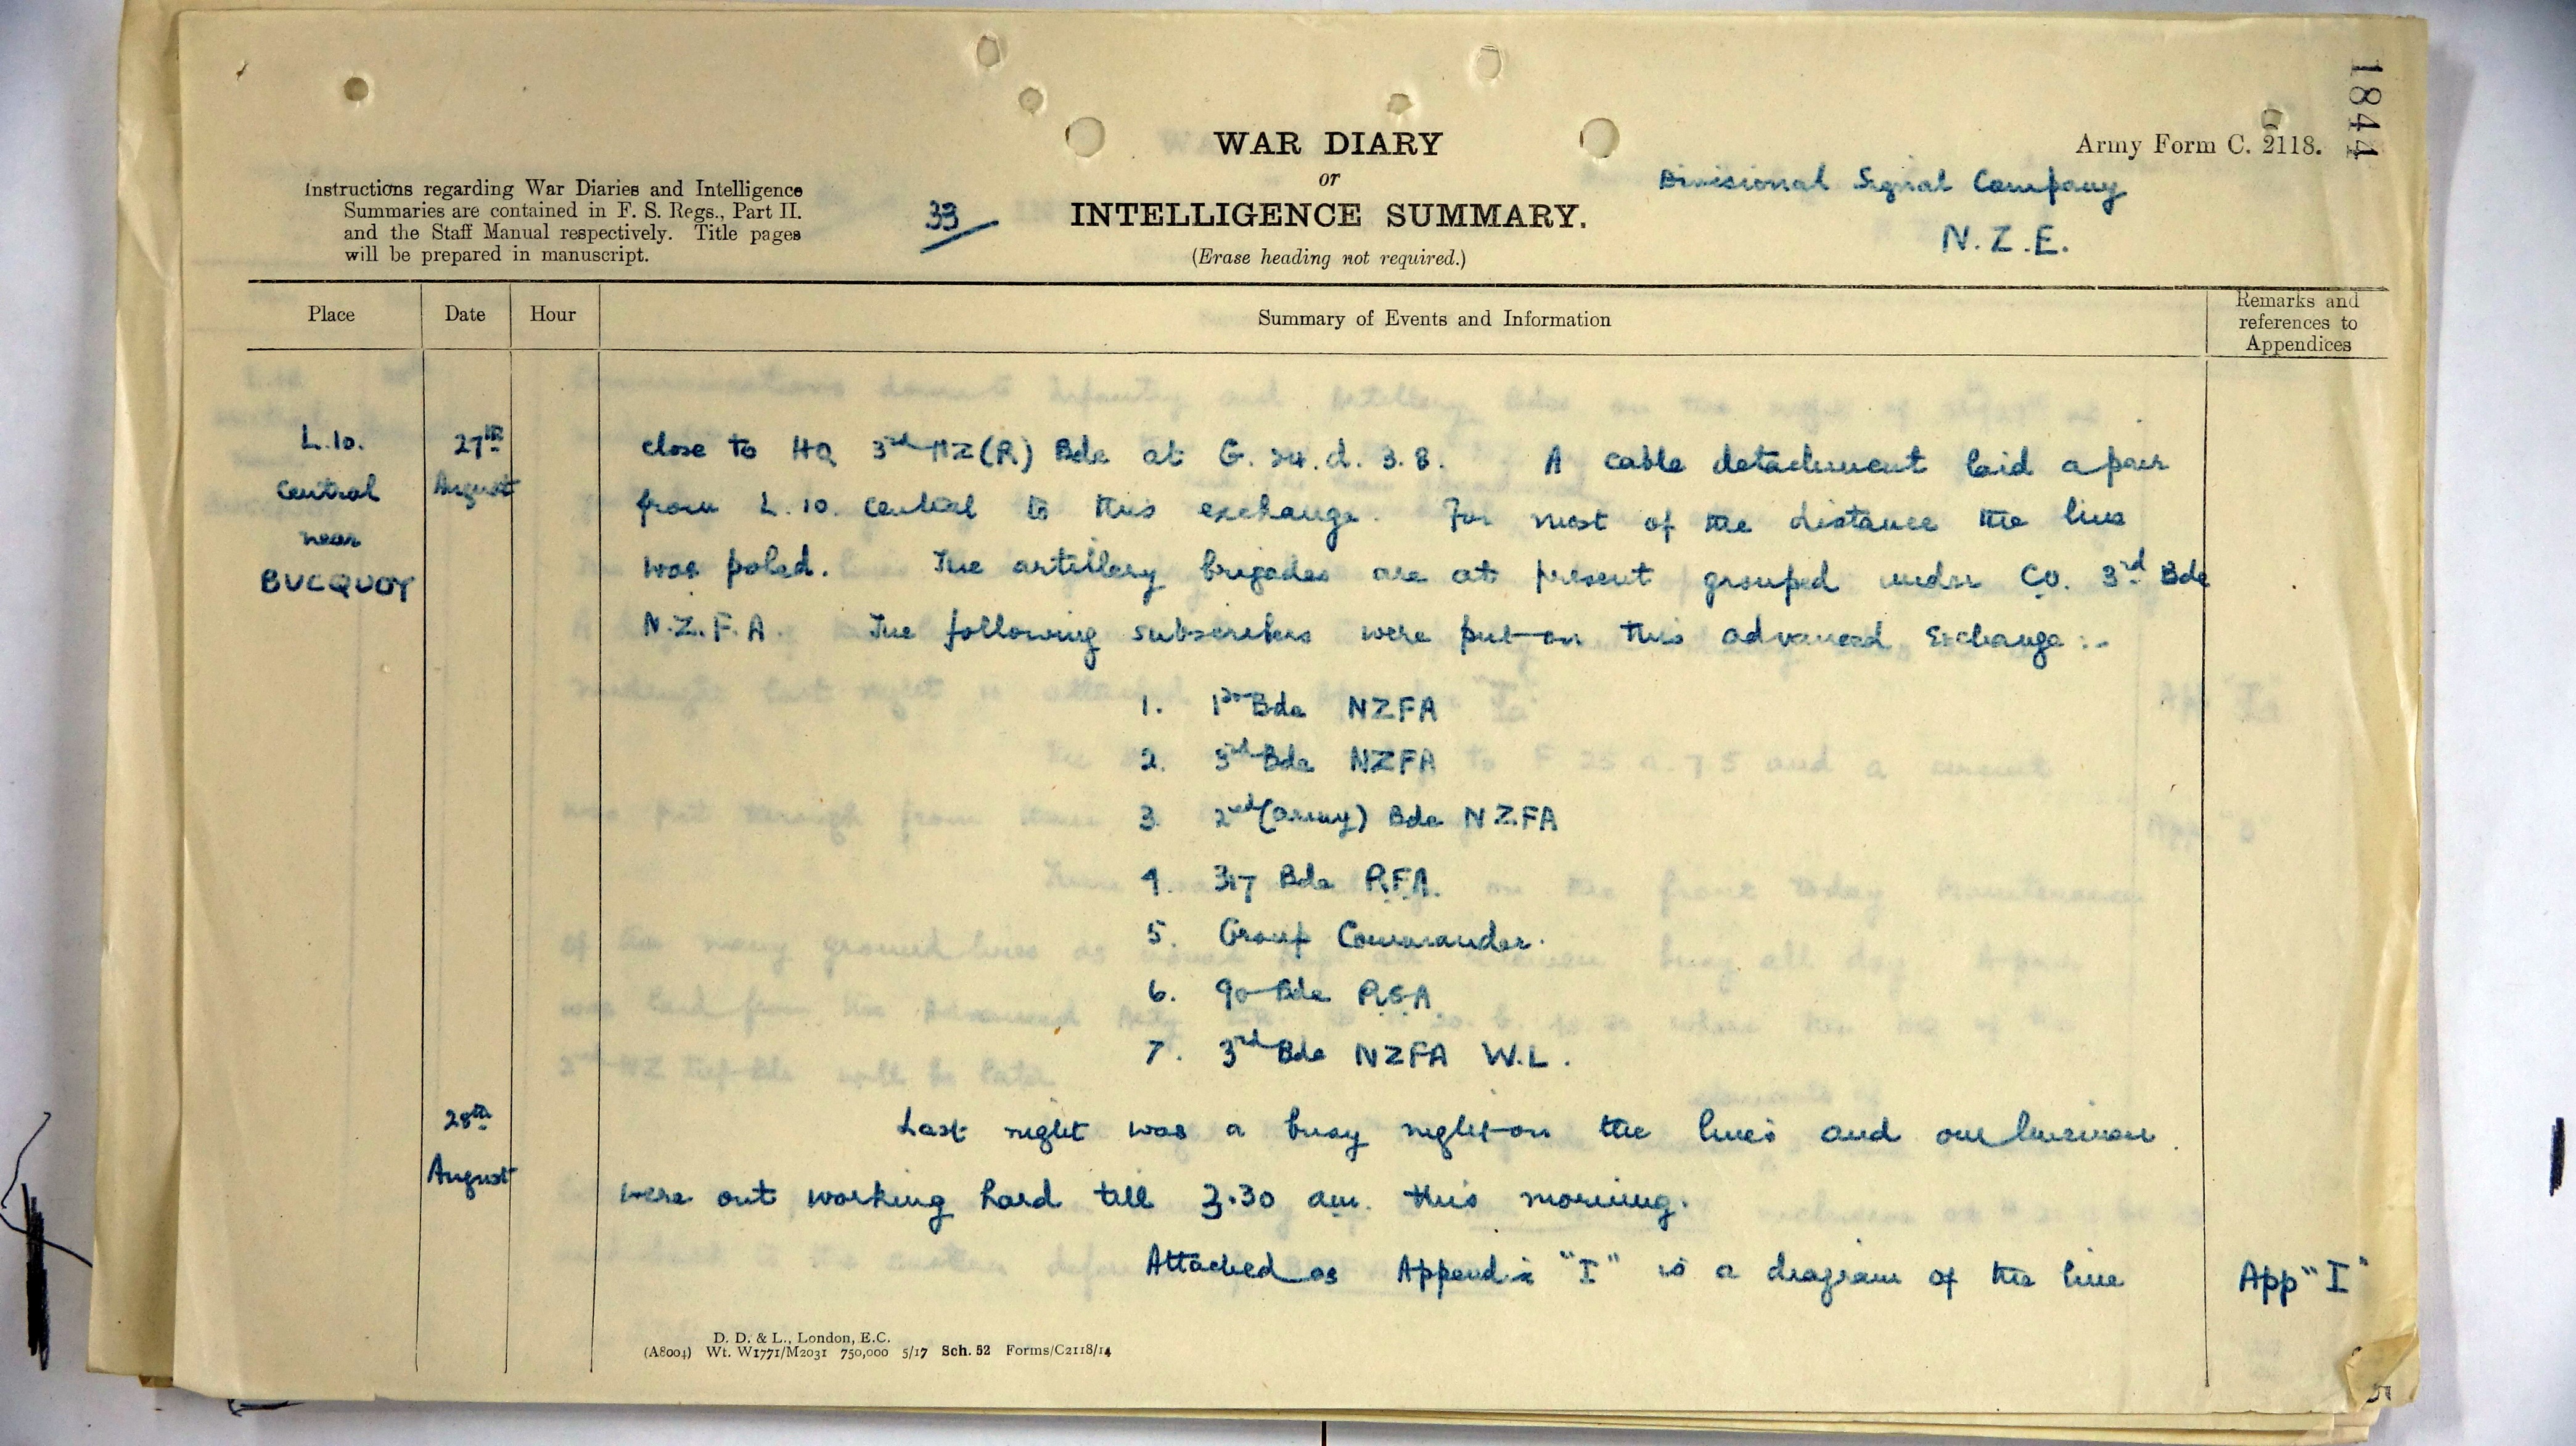 1844
WAR DIARY
or
INTELLIGENCE SUMMARY.
(Erase heading not required.)
Army Form C. 2118.
Instructions regarding War Diaries and Intelligence
Summaries are contained in F. S. Regs., Part II.
and the Staff Manual respectively. Title pages
will be prepared in manuscript.
33
Divisional Signal Company
N.Z.E.
Place Date Hour Summary of Events and Information Remarks and references to Appendices
L.10.
Central
near
BUCQUOY
27th
August
close to HQ 3rd NZ(R) Bde at G. 24. d. 3. 8. A cable detachment laid a pair
from L. 10. Central to this exchange. For most of the distance the line
was poled. The artillery brigades are at present grouped under CO. 3rd Bde
N.Z.F.A. The following subscribers were put on this advanced Exchange :-
1. 1st Bde NZFA
2. 3rd Bde NZFA
3. 2nd (Army) Bde NZFA
4. 317 Bde R.F.A.
5. Group Commander.
6. 90 Bde R.G.A
7. 3rd Bde NZFA W.L.
28th
August
Last night was a busy night on the lines and our linemen
were out working hard till 3.30 am. this morning.
Attached as Appendix "I" is a diagram of the line
App "I"
D. D. & L., London, E.C.
(A8004) Wt. W1771/M2031 750,000 5/17 Sch. 52 Forms/C2118/14